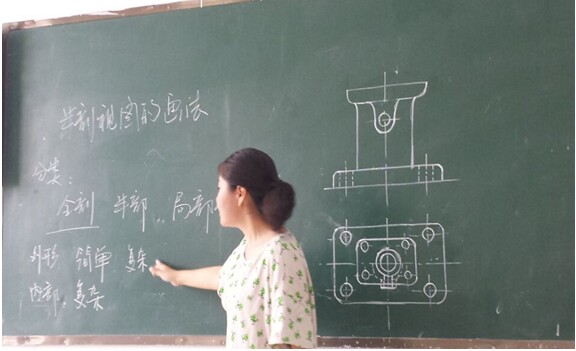 共剖视图的画法
分类:
全剖 半部 局部
外形 简单 复杂
内部 复杂